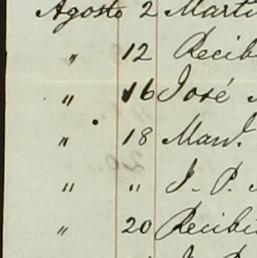 Agosto 2 Marti
" 12 Recib
" 16 José
" 18 Manl.
" " J. P.
" 20 Recibi